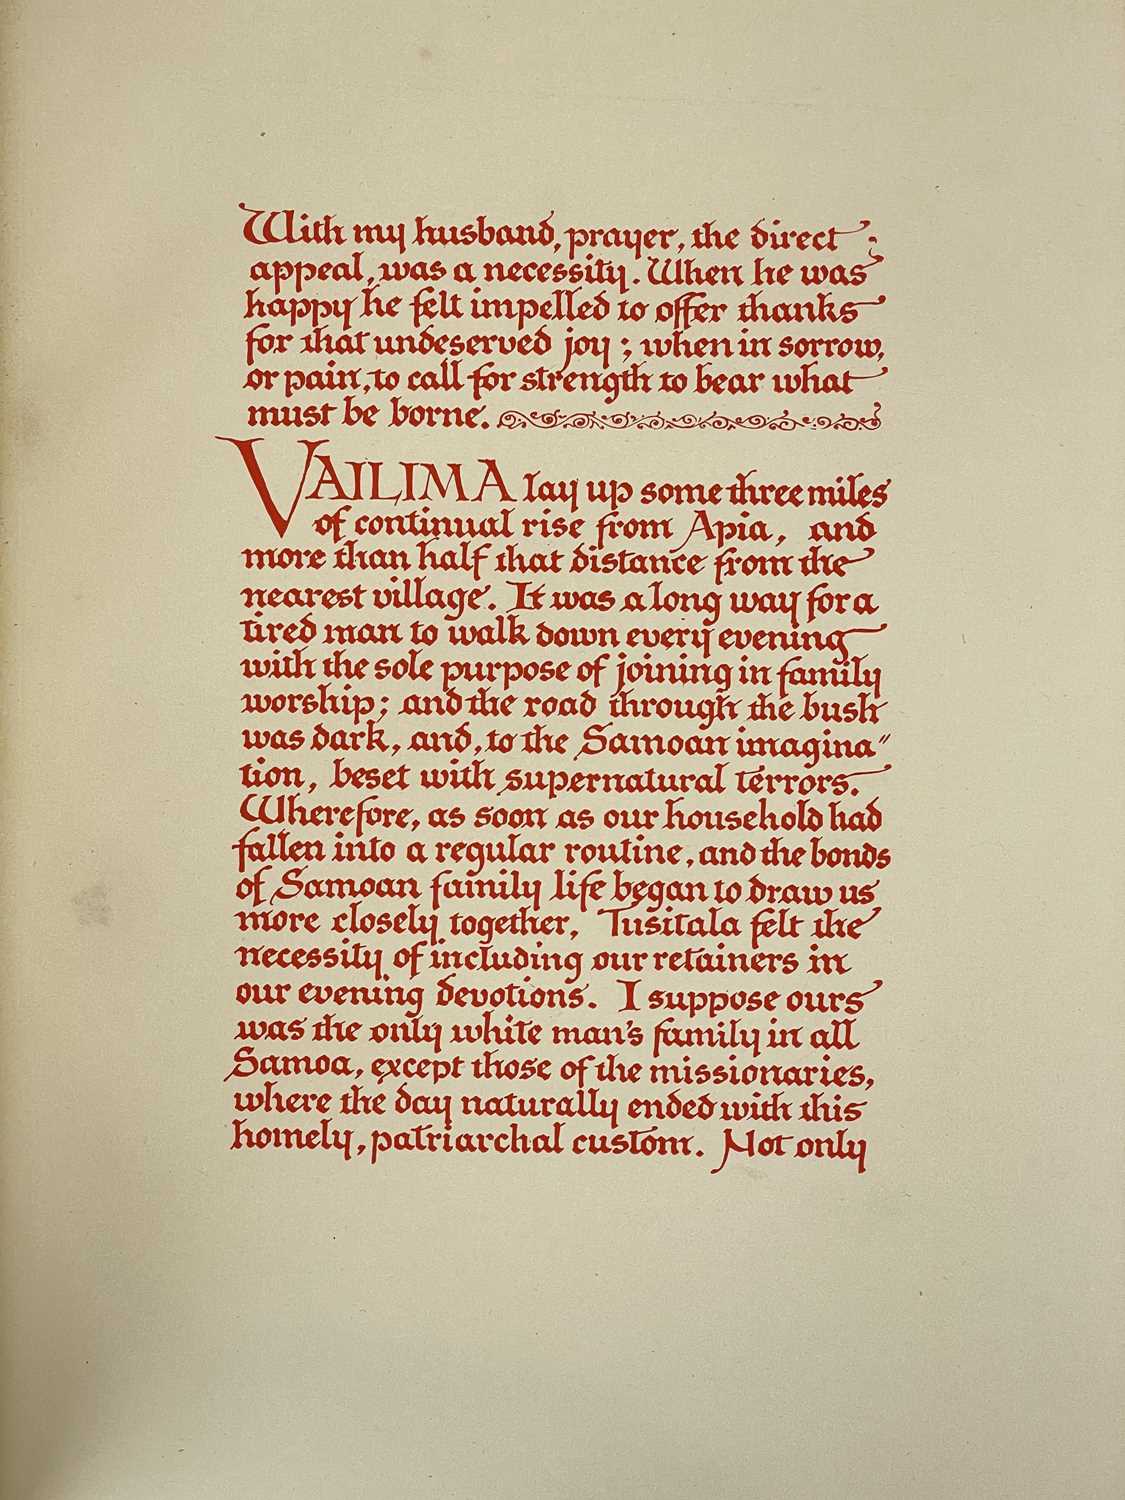 With my husband, prayer, the direct
appeal, was a necessity. When he was
happy he felt impelled to offer thanks
for that undeserved joy; when in sorrow,
or pain, to call for strength to bear what
must be borne.
VAILIMA lay up some three miles
of continual rise from Apia, and
more than half that distance from the
nearest village. It was a long way for a
tired man to walk down every evening
with the sole purpose of joining in family
worship; and the road through the bush
was dark, and, to the Samoan imagina″
tion, beset with supernatural terrors.
Wherefore, as soon as our household had
fallen into a regular routine, and the bonds
of Samoan family life began to draw us
more closely together, Tusitala felt the
necessity of including our retainers in
our evening devotions. I suppose ours
was the only white man's family in all
Samoa, except those of the missionaries,
where the day naturally ended with this
homely, patriarchal custom. Not only